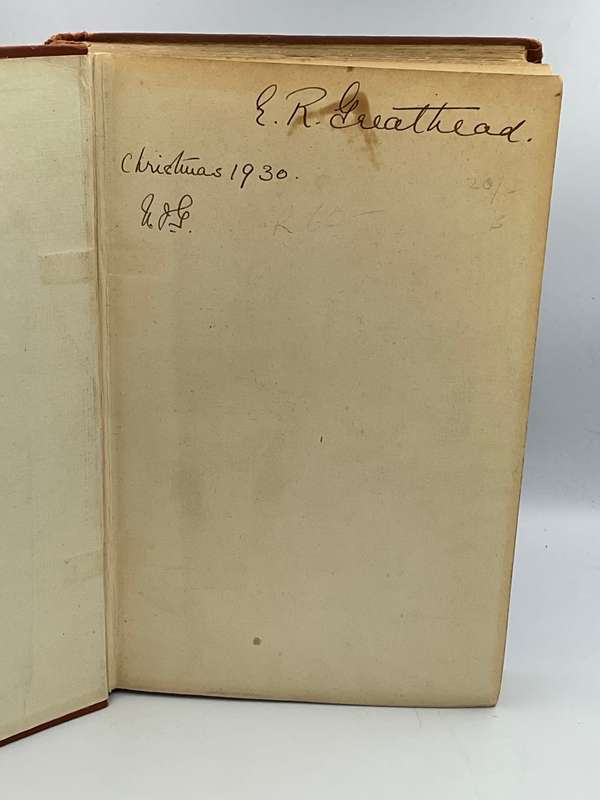 E. R. Greathead.
Christmas 1930.
20/-